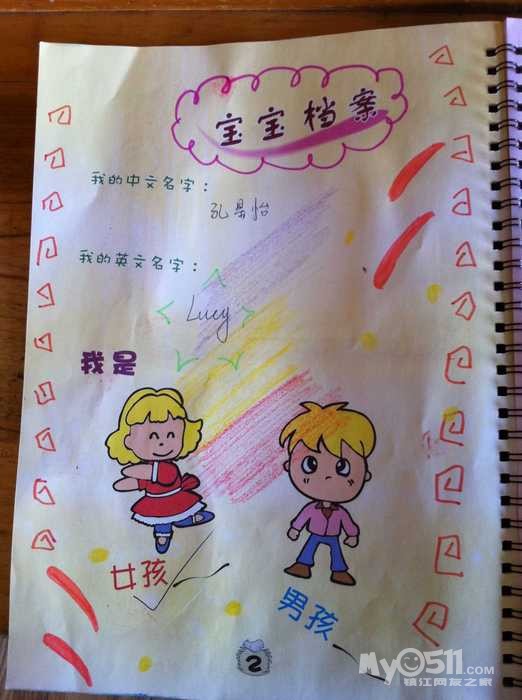 宝宝档案
我的中文名字：
孔果怡
我的英文名字：
Lucy
我是
女孩
男孩
2
My0511.com
镇江网友之家